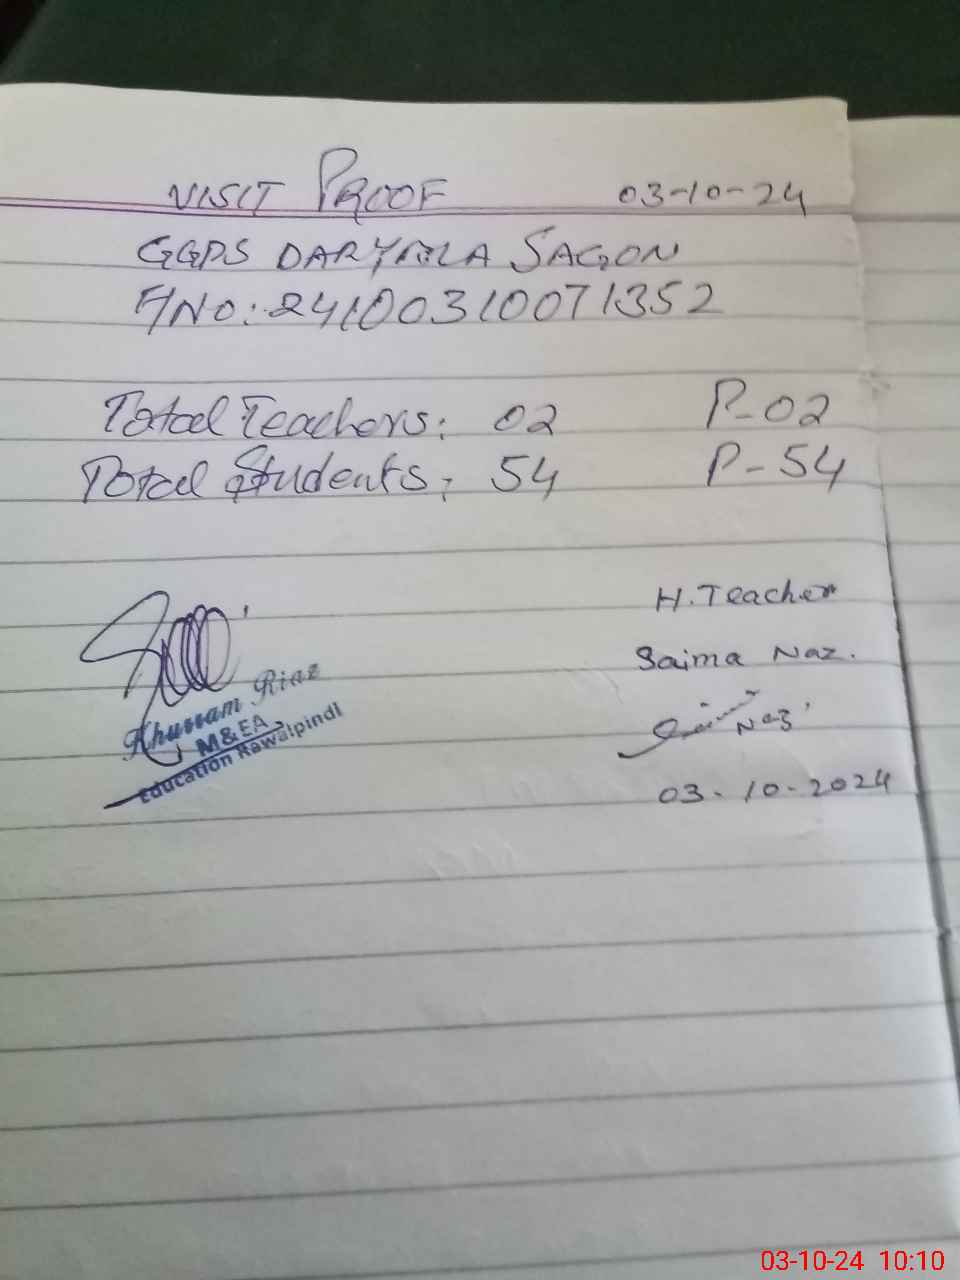 VISIT PROOF 03-10-24
GGPS DARYALA SAGON
F/NO: 24100310071352
Total Teachers: 02 P-02
Total Students: 54 P-54
H.Teacher
Saima Naz.
Khurram Riaz
M&EA
Education Rawalpindi
Naz
03-10-2024
03-10-24 10:10